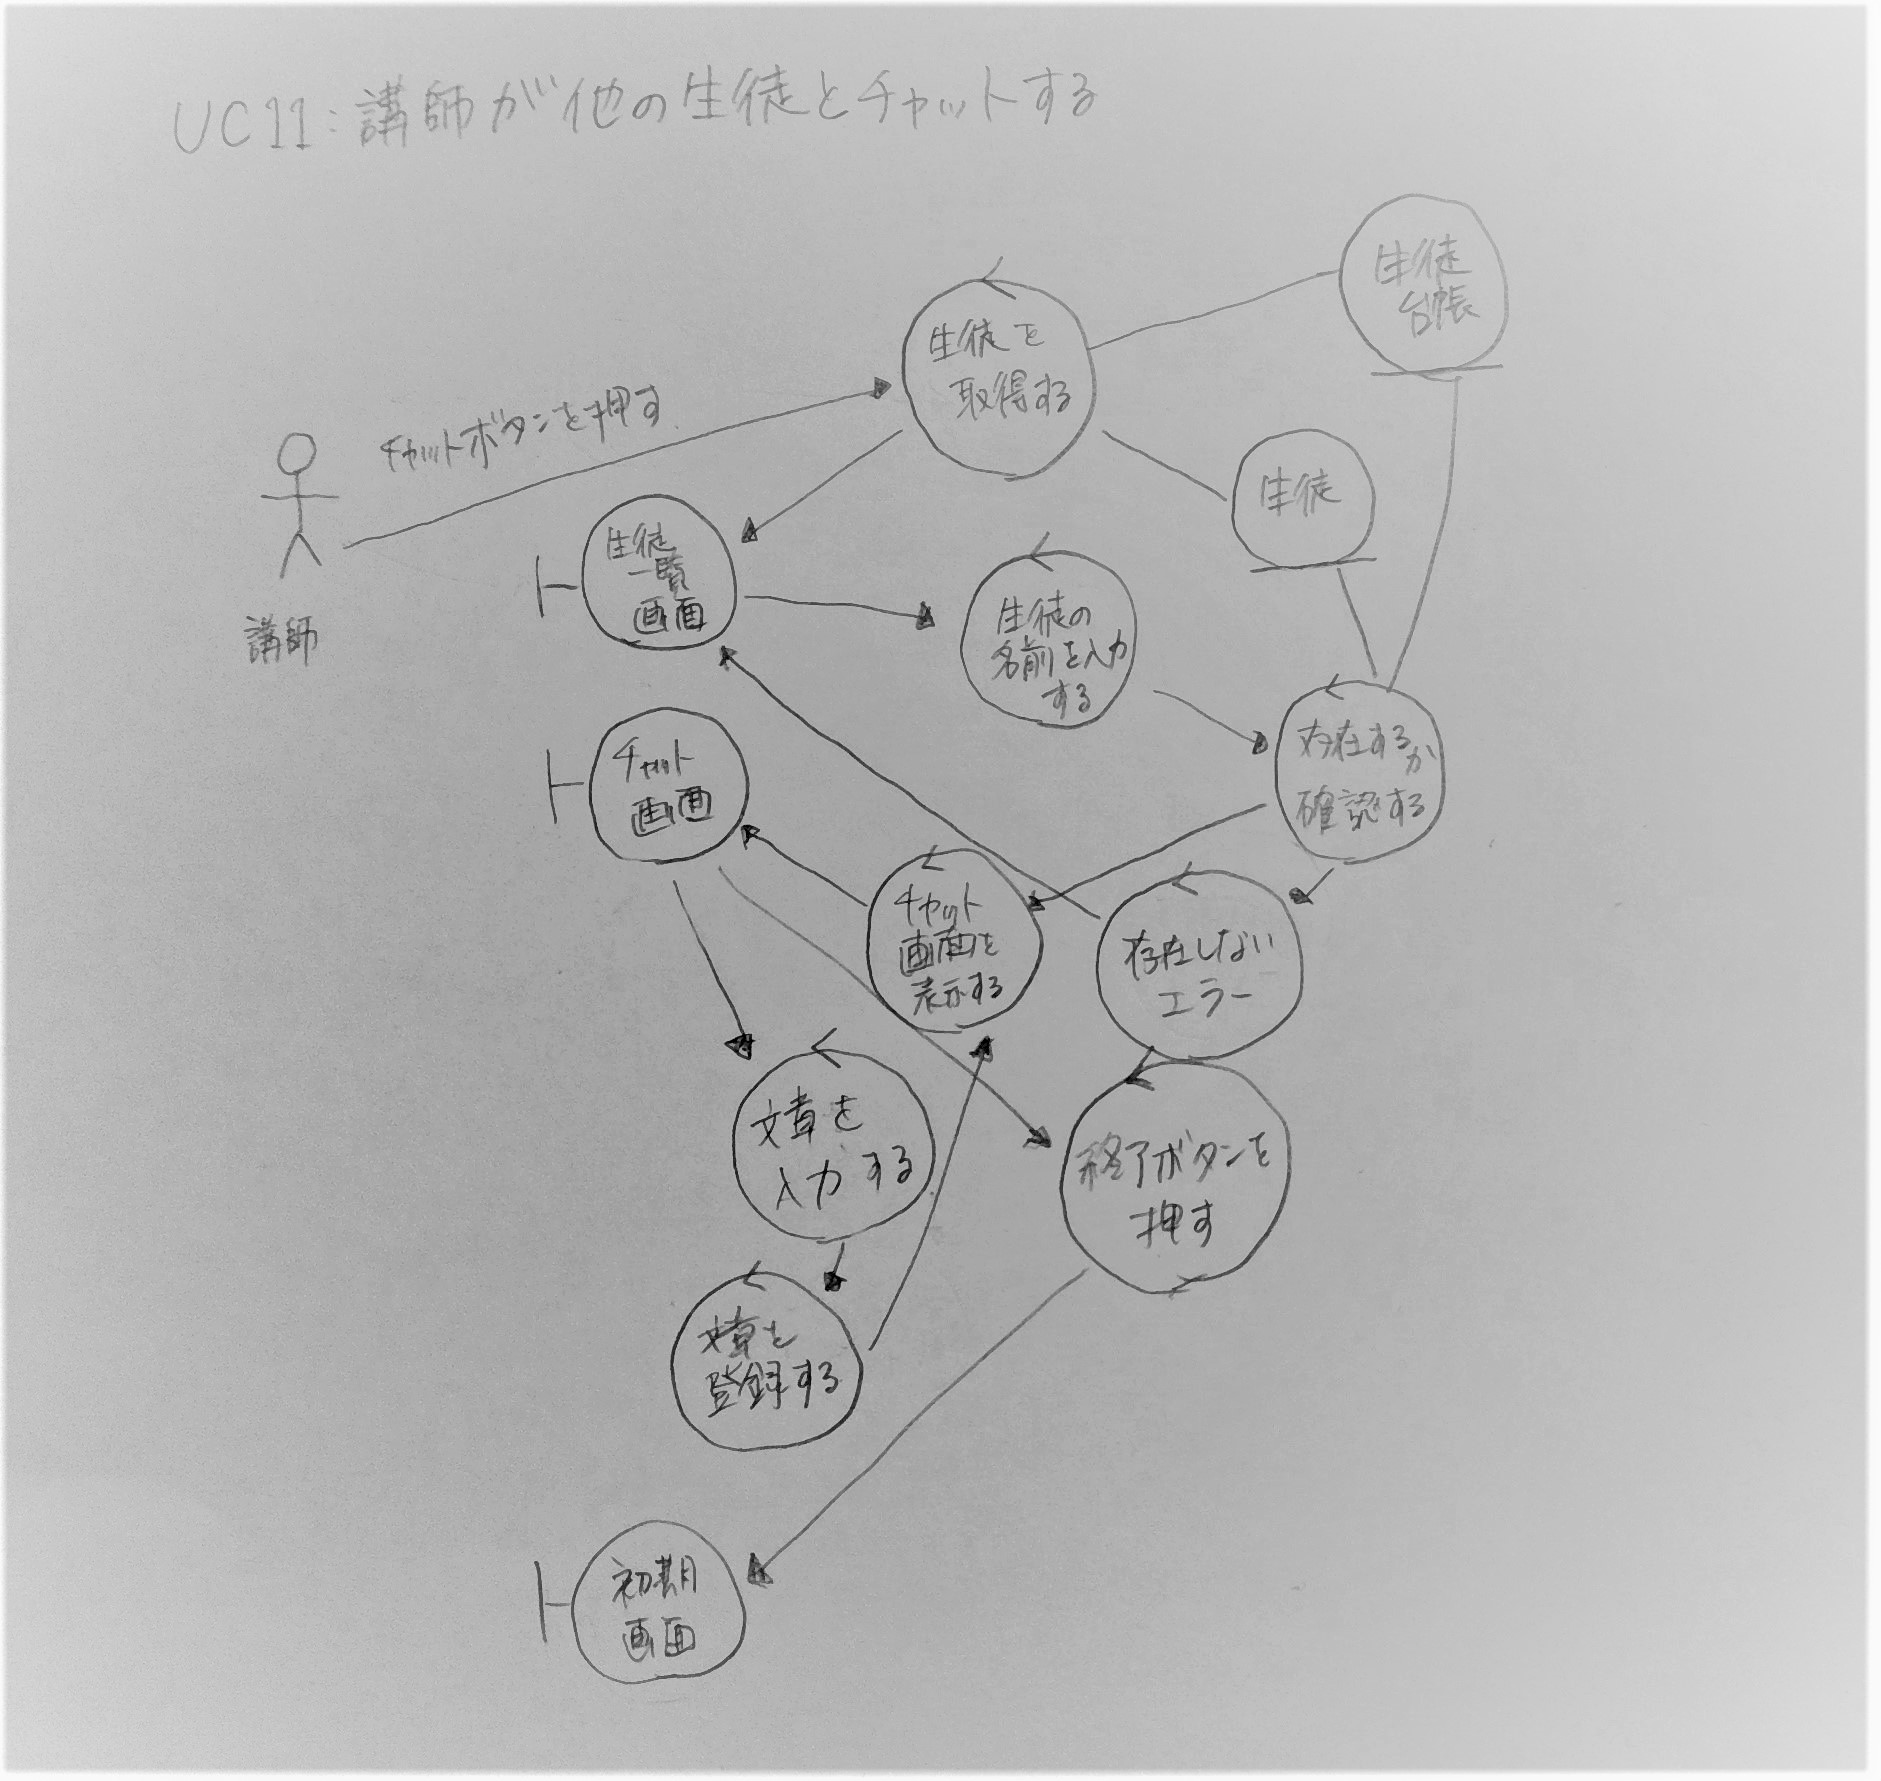 UC11:講師が他の生徒とチャットする
生徒
台帳
生徒を
取得する
チャットボタンを押す
生徒
生徒
一覧
画面
生徒の
名前を入力
する
講師
存在するか
確認する
チャット
画面
チャット
画面を
表示する
存在しない
エラー
文章を
入力する
終了ボタンを
押す
文章を
登録する
初期
画面